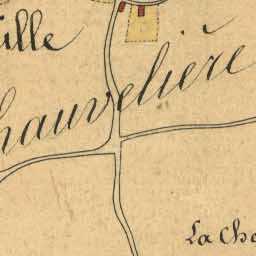 ille
hauvelière
La Cha